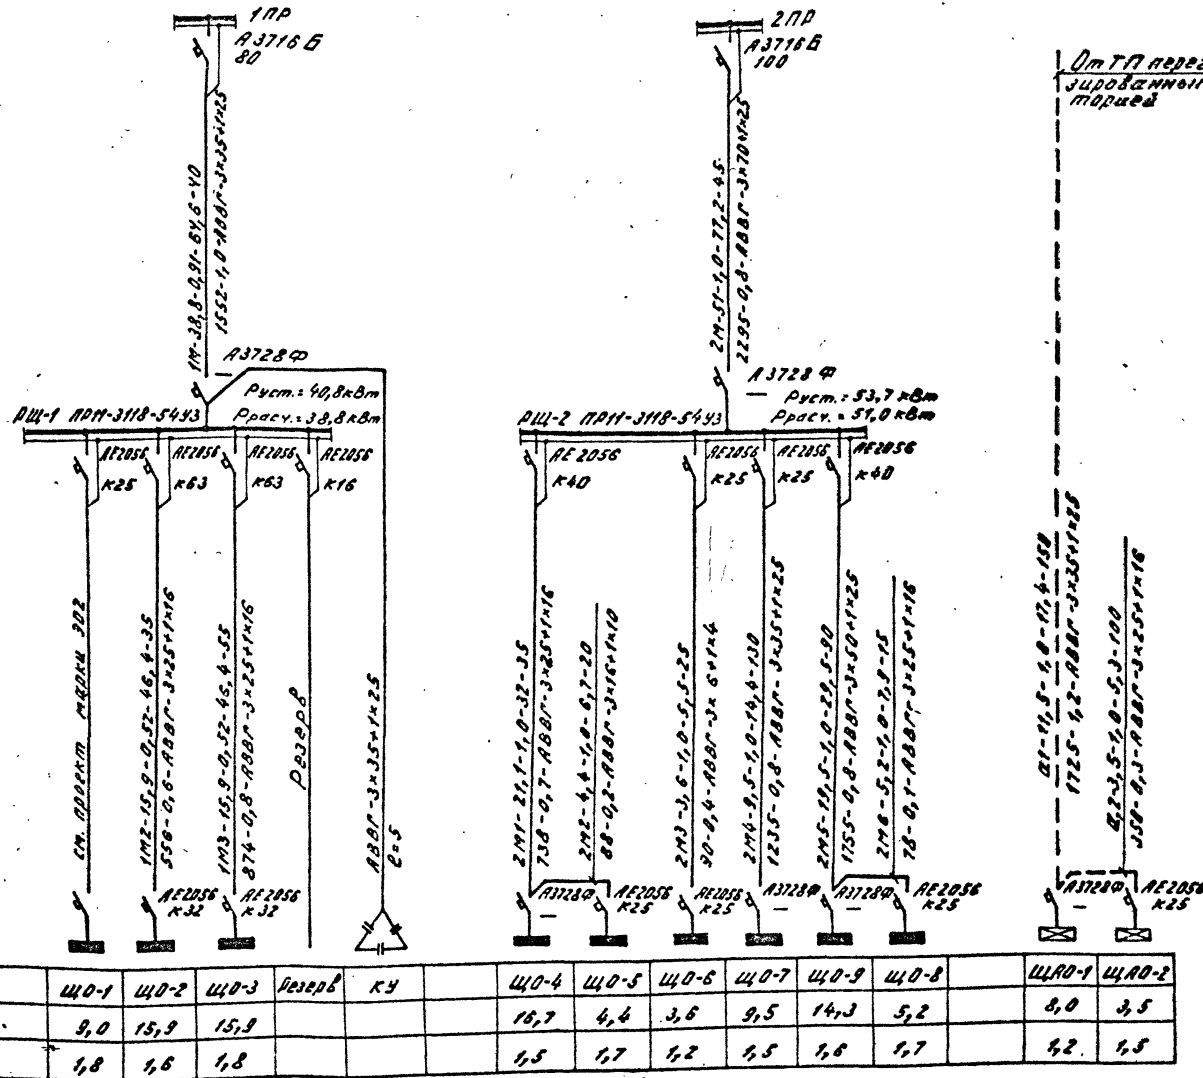 1ПР
А3716Б
80
1М-38,8-0,91-64,6-40
1552-1,0-АВВГ-3×35+1×25
А3728Ф
Руст.=40,8кВт
Ррасч.=38,8кВт
РЩ-1 ПР11-3118-54У3
АЕ2056
К25
АЕ2056
К63
АЕ2056
К63
АЕ2056
К16
см. проект марки ЭО2
1М2-15,9-0,52-46,4-35
556-0,6-АВВГ-3×25+1×16
1М3-15,9-0,52-46,4-55
874-0,8-АВВГ-3×25+1×16
Резерв
АВВГ-3×35+1×25
ℓ=5
АЕ2056
К32
АЕ2056
К32
2ПР
А3716Б
100
2М-51-1,0-77,2-45
2295-0,8-АВВГ-3×70+1×25
А3728Ф
Руст.=53,7кВт
Ррасч.=51,0кВт
РЩ-2 ПР11-3118-54У3
АЕ2056
К40
АЕ2056
К25
АЕ2056
К25
АЕ2056
К40
2М1-21,1-1,0-32-35
738-0,7-АВВГ-3×25+1×16
2М2-4,4-1,0-6,7-20
88-0,2-АВВГ-3×16+1×10
2М3-3,6-1,0-5,5-25
90-0,4-АВВГ-3×6+1×4
2М4-9,5-1,0-14,4-130
1235-0,8-АВВГ-3×35+1×25
2М5-19,5-1,0-29,5-90
1755-0,8-АВВГ-3×50+1×25
2М6-5,2-1,0-7,9-15
78-0,1-АВВГ-3×25+1×16
А3728Ф
АЕ2056
К25
АЕ2056
К25
А3728Ф
А3728Ф
АЕ2056
К25
От ТП перед
зированный
торией
а1-11,5-1,0-17,4-150
1725-1,2-АВВГ-3×35+1×25
а2-3,5-1,0-5,3-100
350-0,3-АВВГ-3×25+1×16
А3728Ф
АЕ2056
К25
ЩО-1 ЩО-2 ЩО-3 Резерв КУ ЩО-4 ЩО-5 ЩО-6 ЩО-7 ЩО-9 ЩО-8 ЩАО-1 ЩАО-2
9,0 15,9 15,9 16,7 4,4 3,6 9,5 14,3 5,2 8,0 3,5
1,8 1,6 1,8 1,5 1,7 1,2 1,5 1,6 1,7 1,2 1,5